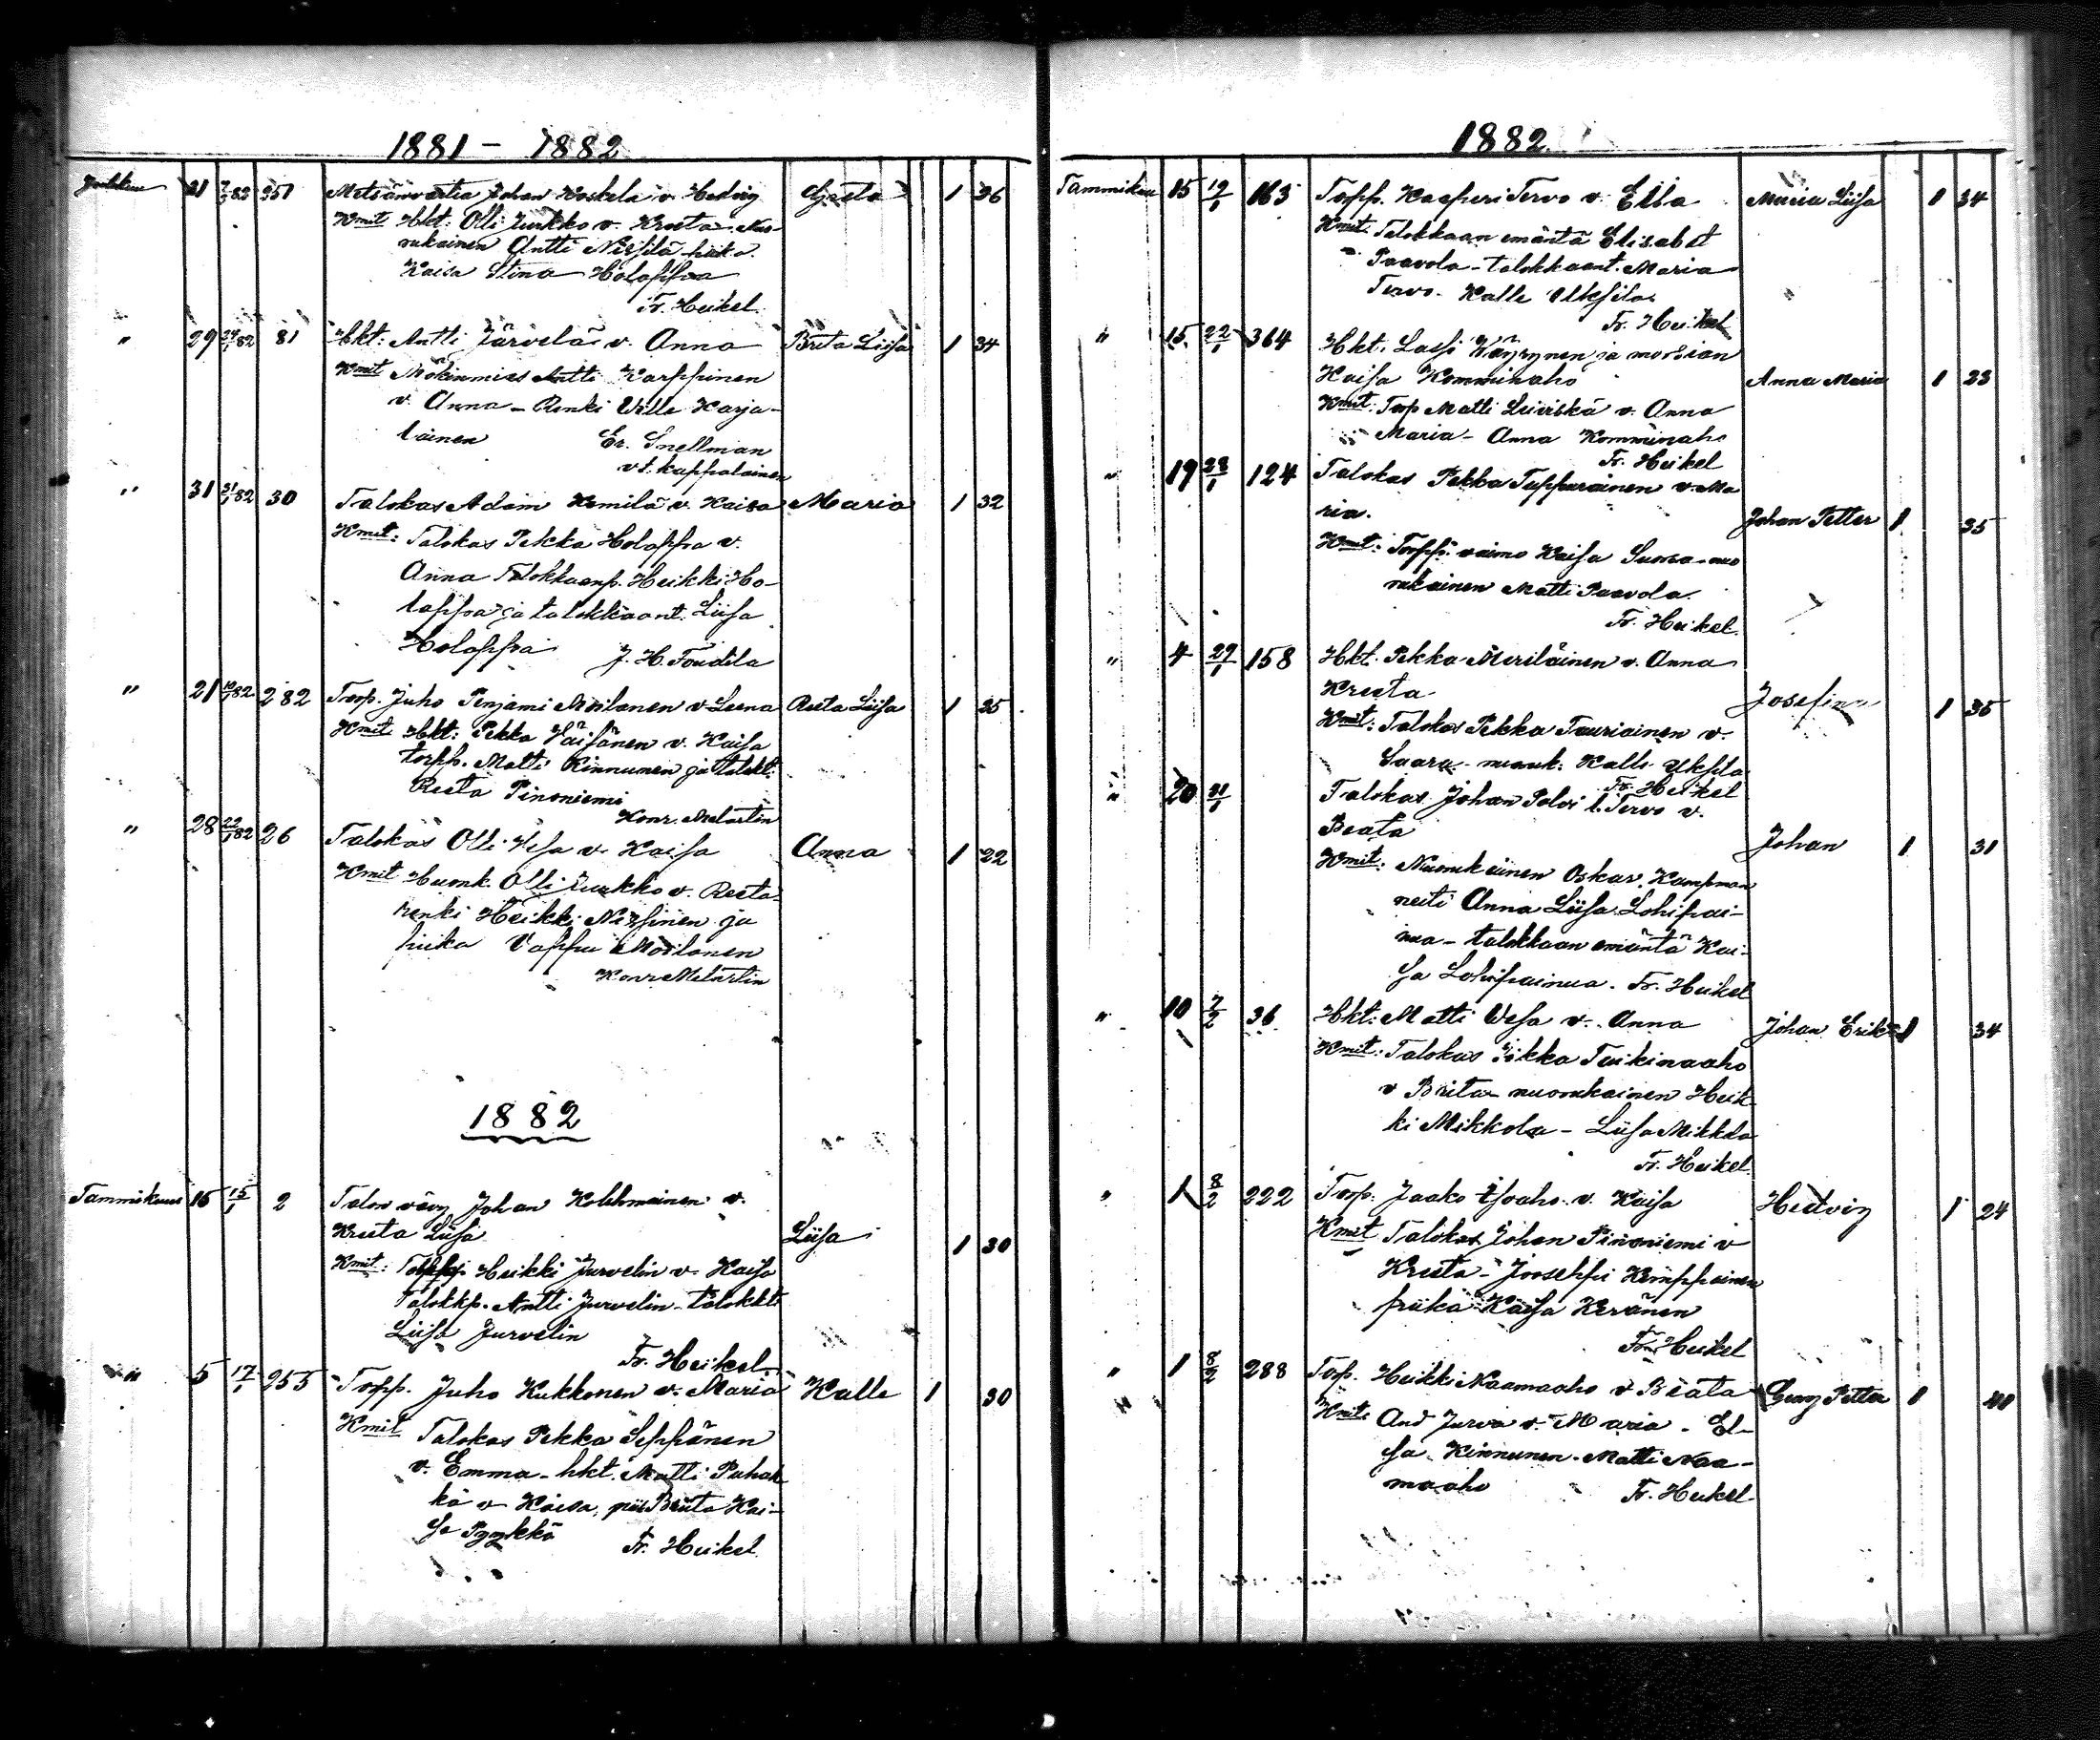 1881 - 1882
Joulukuu 21 7/1 82 251 Metsänvartia Johan Koskela v. Hedvig Greta 1 36
Kmit Hkt: Olli Jurkko v. Kreeta - Nuo-
rukainen Antti Nissilä - piika
Kaisa Stina Holappa
Fr. Heikel.
" 29 24/1 82 81 Hkt: Antti Järvelä v. Anna Brita Liisa 1 34
Kmit Mökinmies Antti Karppinen
v. Anna - Renki Ville Karja-
lainen Er. Snellman
vt. kappalainen
" 31 31/1 82 30 Talokas Adam Kemilä v. Kaisa Maria 1 32
Kmit: Talokas Pekka Holappa v.
Anna Talokkaanp. Heikki Ho-
lappa ja talokkaant. Liisa
Holappa J. H. Toudila
" 21 10/1 82 282 Torp. Juho Penjami Moilanen v. Leena Reeta Liisa 1 35
Kmit Hkt: Pekka Väisänen v. Kaisa
torpp. Matti Kinnunen ja talokt.
Reeta Pinoniemi
Konr. Melartin
" 28 22/1 82 26 Talokas Olli Vesa v. Kaisa Anna 1 22
Kmit Huonk. Olli Jurkko v. Reeta
renki Heikki Nissinen ja
piika Vappu Moilanen
Konr Melartin
1882
Tammikuu 16 15/1 2 Talon vävy Johan Kohlmainen v.
Kreeta Liisa Liisa 1 30
Kmit: Heikki Jurvelin v. Kaisa
Talokkp. Antti Jurvelin - talokkt.
Liisa Jurvelin
Fr. Heikel
" 5 17/1 255 Torpp. Juho Kukkonen v. Maria Kalle 1 30
Kmit Talokas Pekka Seppänen
v. Emma - hkt. Matti Puhak-
ka v. Kaisa, pii. Brita Kai-
sa Pyykkö Fr. Heikel.
1882
Tammikuu 15 19/1 163 Torpp. Kasperi Tervo v. Ella Maria Liisa 1 34
Kmit: Talokkaan emäntä Elisabet
Paavola - talokkaant. Maria
Tervo - Kalle Yksilä
Fr. Heikel
" 15 22/1 364 Hkt. Lassi Väyrynen ja morsian
Kaisa Komminaho Anna Maria 1 23
Kmit: Torp Matti Leiviskä v. Anna
Maria - Anna Komminaho
Fr. Heikel
" 19 28/1 124 Talokas Pekka Tuppurainen v. Ma
ria. Johan Petter 1 35
Kmit: Torpp. vaimo Kaisa Suova - nuo
rukainen Matti Paavola.
Fr. Heikel.
" 4 29/1 158 Hkt. Pekka Meriläinen v. Anna
Kreeta Josefina 1 35
Kmit: Talokas Pekka Tauriainen v.
Saara - nuoruk. Kalle Yksilä
Fr. Heikel
" 20 31/1 Talokas Johan Polvi l. Tervo v.
Beata Johan 1 31
Kmit: Nuorukainen Oskar Kampman
neiti Anna Liisa Lohipai-
nua - talokkaan emäntä Kai-
sa Lohipainua. Fr. Heikel
" 10 7/2 36 Hkt: Matti Vesa v. Anna Johan Erik 1 34
Kmit: Talokas Pekka Tuikinaaho
v Brita - nuorukainen Heik-
ki Mikkola - Liisa Mikkola
Fr. Heikel.
" 1 8/2 222 Torp: Jaako Isoaho v. Kaisa Hedvig 1 24
Kmit Talokas Johan Pinoniemi v
Kreeta - Jooseppi Kemppainen
piika Kaisa Keränen
Fr. Heikel
" 1 8/2 288 Torp. Heikki Naamaaho v Beata Georg Petter 1 40
Kmit: And Jurva v. Maria - El-
sa Kinnunen - Matti Naa-
maaho Fr. Heikel.